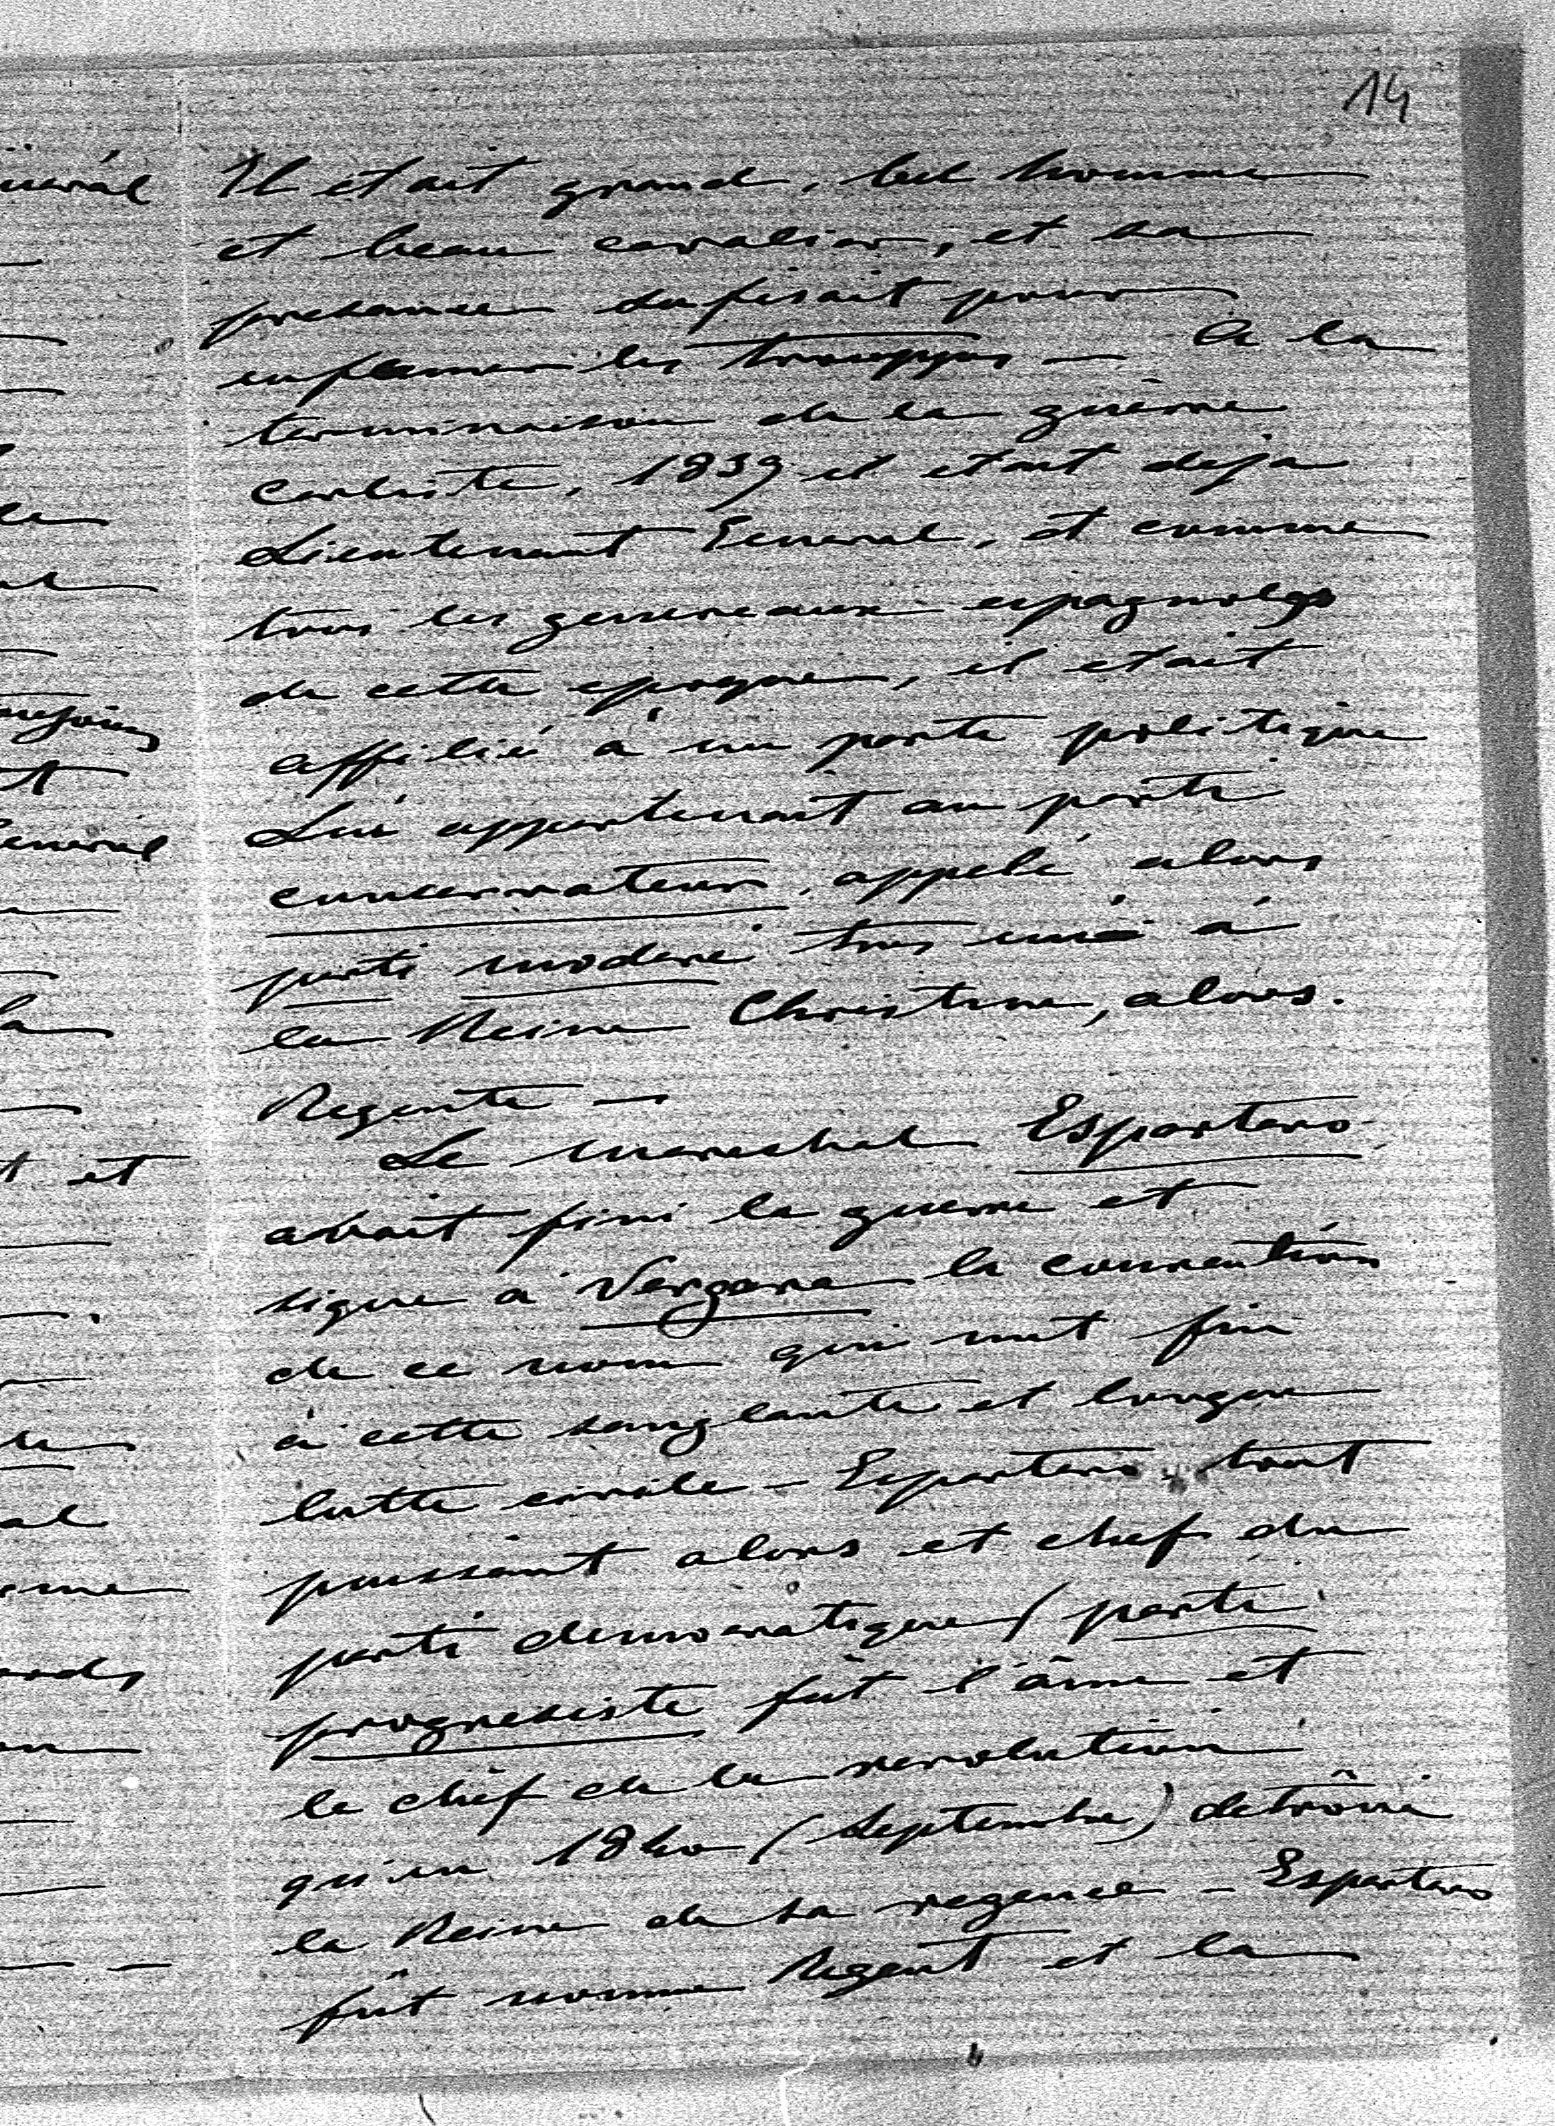 14
Il etait grand, bel homme
et beau cavalier, et sa
presence sufisait pour
enflamer les trouppes — A la
terminaison de la guèrre
carliste, 1839 il etait deja
Lieutenant General, et comme
tous les genereaux espagnols
de cette epoque, il etait
affilié à un parti politique
Lui appartenait au parti
conservateur, appelé alors
parti moderé tres uni à
la Reine Christine, alors.
Regente —
Le mareshal Espartero
avait fini la guerre et
signe a Vergara la convention
de ce nom qui mit fin
à cette sanglante et longue
lutte civile — Espartero tout
puissant alors et chef du
parti democratique / parti
progresiste fût l'âme et
le chef de la revolution
qui en 1840 (Septembre) detrôné
la Reine de sa regence — Espartero
fût nomme Regent et la